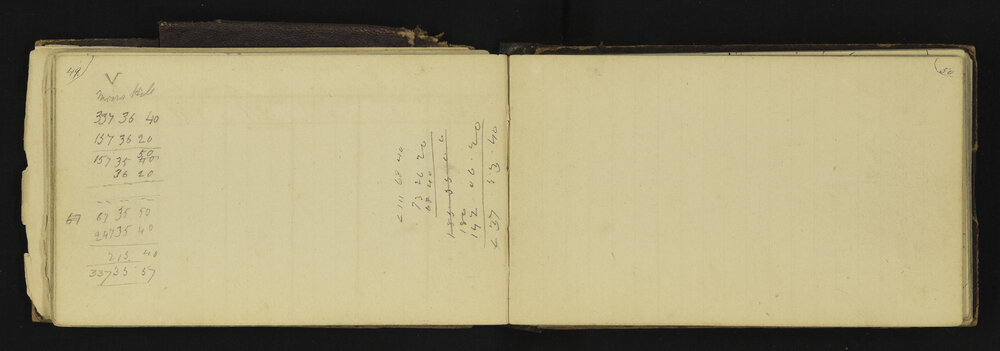 49
337 36 40
157 36 20
50
157 35 40
36 20
67 67 35 50
2 47 35 40
213. 40
337 35 57
< 111 68 40
73 26 20
68 40
180
142 06. 20
< 37 53. 40
50